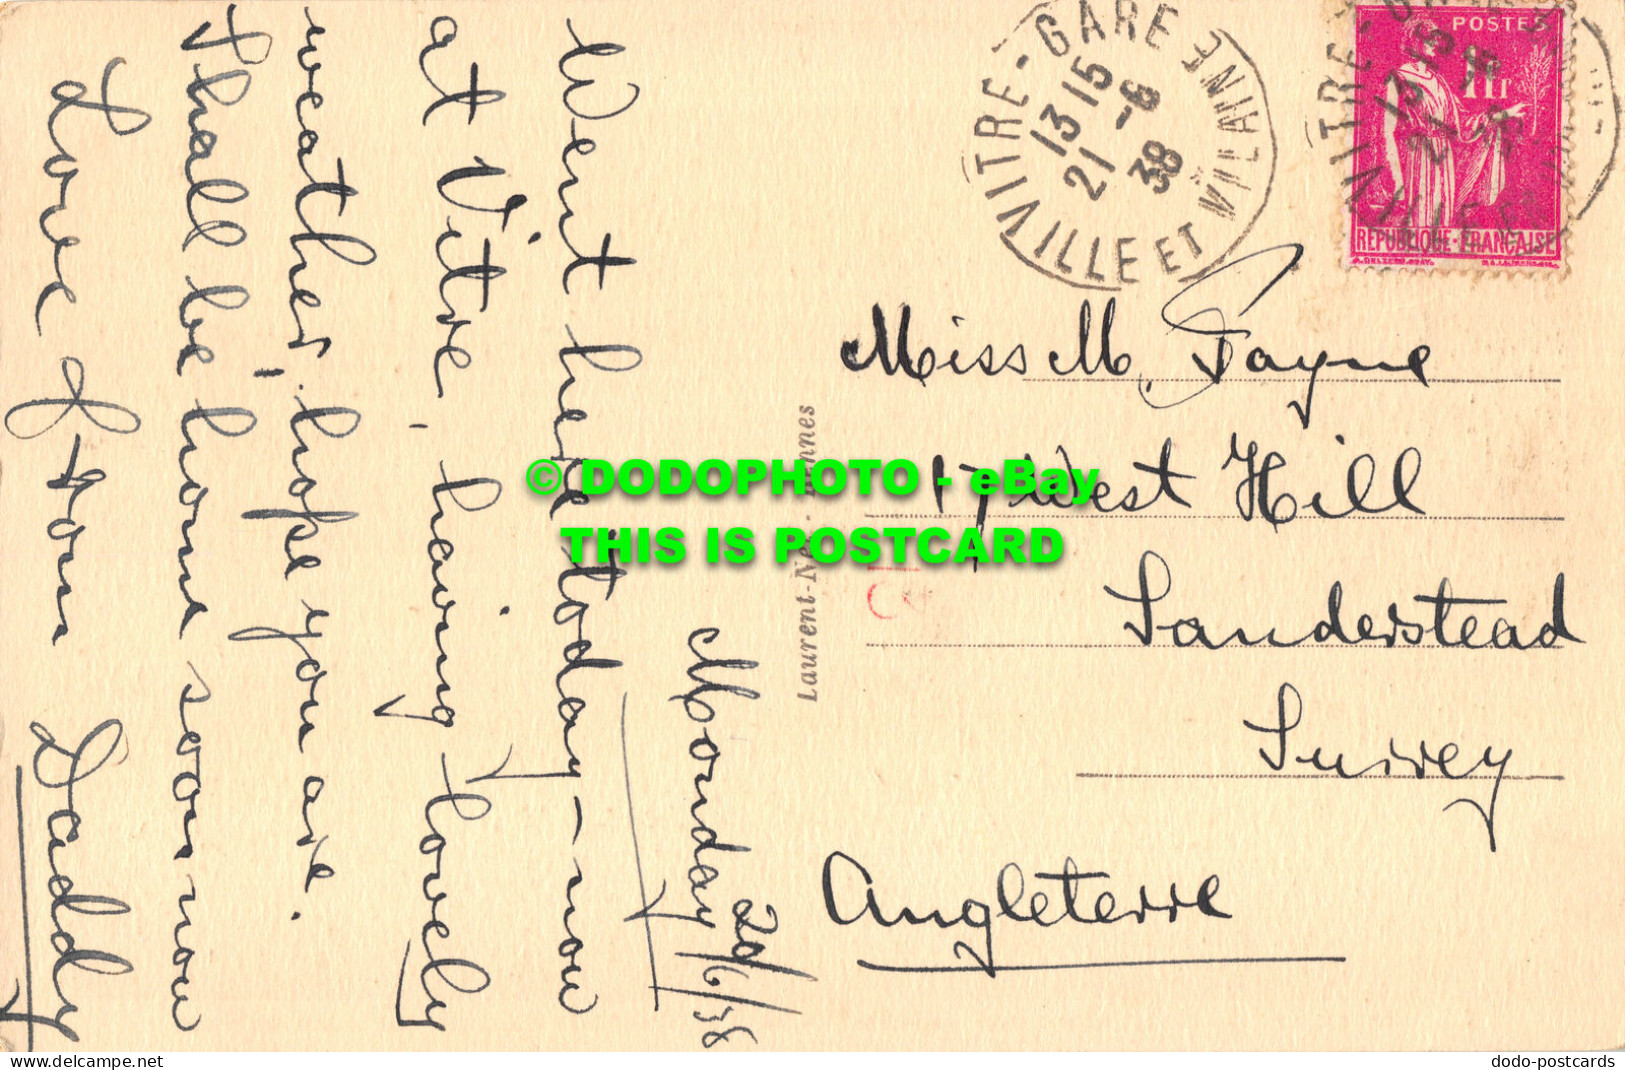 Monday 20/6/38
Went here today - now
at Vitre, having lovely
weather, hope you are.
Shall be home soon now
Love from Daddy
Laurent-Nel - Rennes
VITRE-GARE
13 15
21 -6 38
ILLE ET VILAINE
VITRE-GARE
13 15
21 -6 38
ILLE ET VILAINE
POSTES
1F
REPUBLIQUE FRANÇAISE
Miss M. Payne
17 West Hill
Sanderstead
Surrey
Angleterre
© DODOPHOTO - eBay
THIS IS POSTCARD
the-postcards.delcampe.net
dodo-postcards